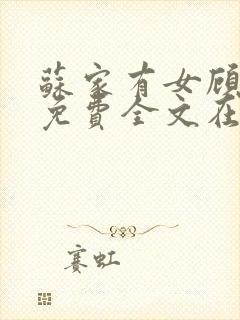 蘇家有女顾
免費全文在
赛虹